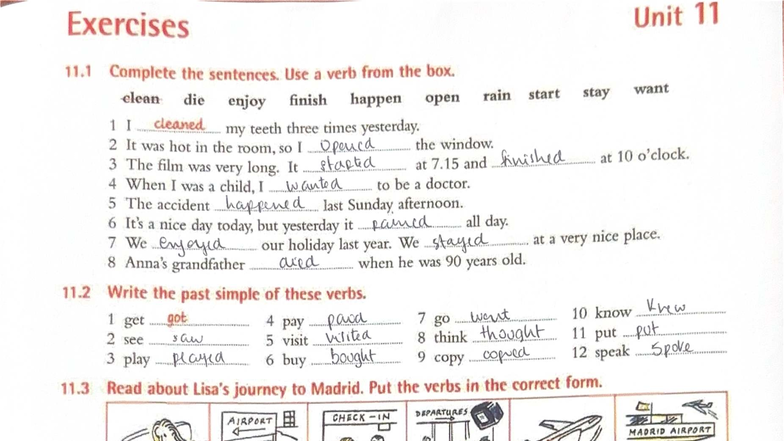 Exercises
Unit 11
11.1 Complete the sentences. Use a verb from the box.
clean die enjoy finish happen open rain start stay want
1 I cleaned my teeth three times yesterday.
2 It was hot in the room, so I opened the window.
3 The film was very long. It started at 7.15 and finished at 10 o'clock.
4 When I was a child, I wanted to be a doctor.
5 The accident happened last Sunday afternoon.
6 It's a nice day today, but yesterday it rained all day.
7 We enjoyed our holiday last year. We stayed at a very nice place.
8 Anna's grandfather died when he was 90 years old.
11.2 Write the past simple of these verbs.
1 get got 4 pay paid 7 go went 10 know knew
2 see saw 5 visit visited 8 think thought 11 put put
3 play played 6 buy bought 9 copy copied 12 speak spoke
11.3 Read about Lisa's journey to Madrid. Put the verbs in the correct form.
AIRPORT CHECK-IN DEPARTURES MADRID AIRPORT